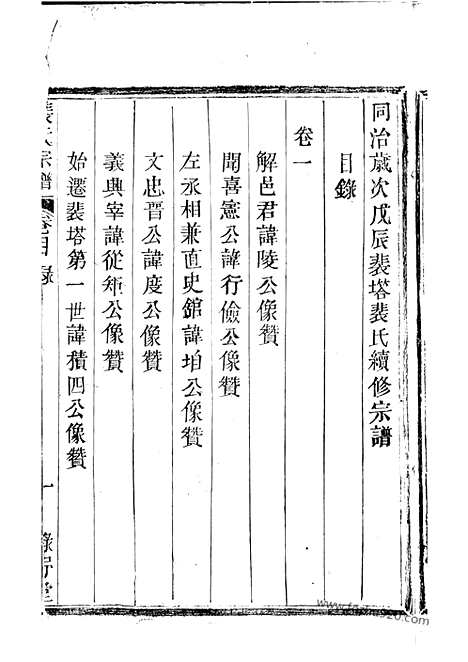 同治歲次戊辰裴塔裴氏續修宗譜
目錄
卷一
解邑君諱陵公像贊
聞喜憲公諱行儉公像贊
左丞相兼直史館諱垍公像贊
文忠晋公諱度公像贊
義興宰諱從矩公像贊
始遷裴塔第一世諱積四公像贊
裴氏宗譜 卷 目錄 一